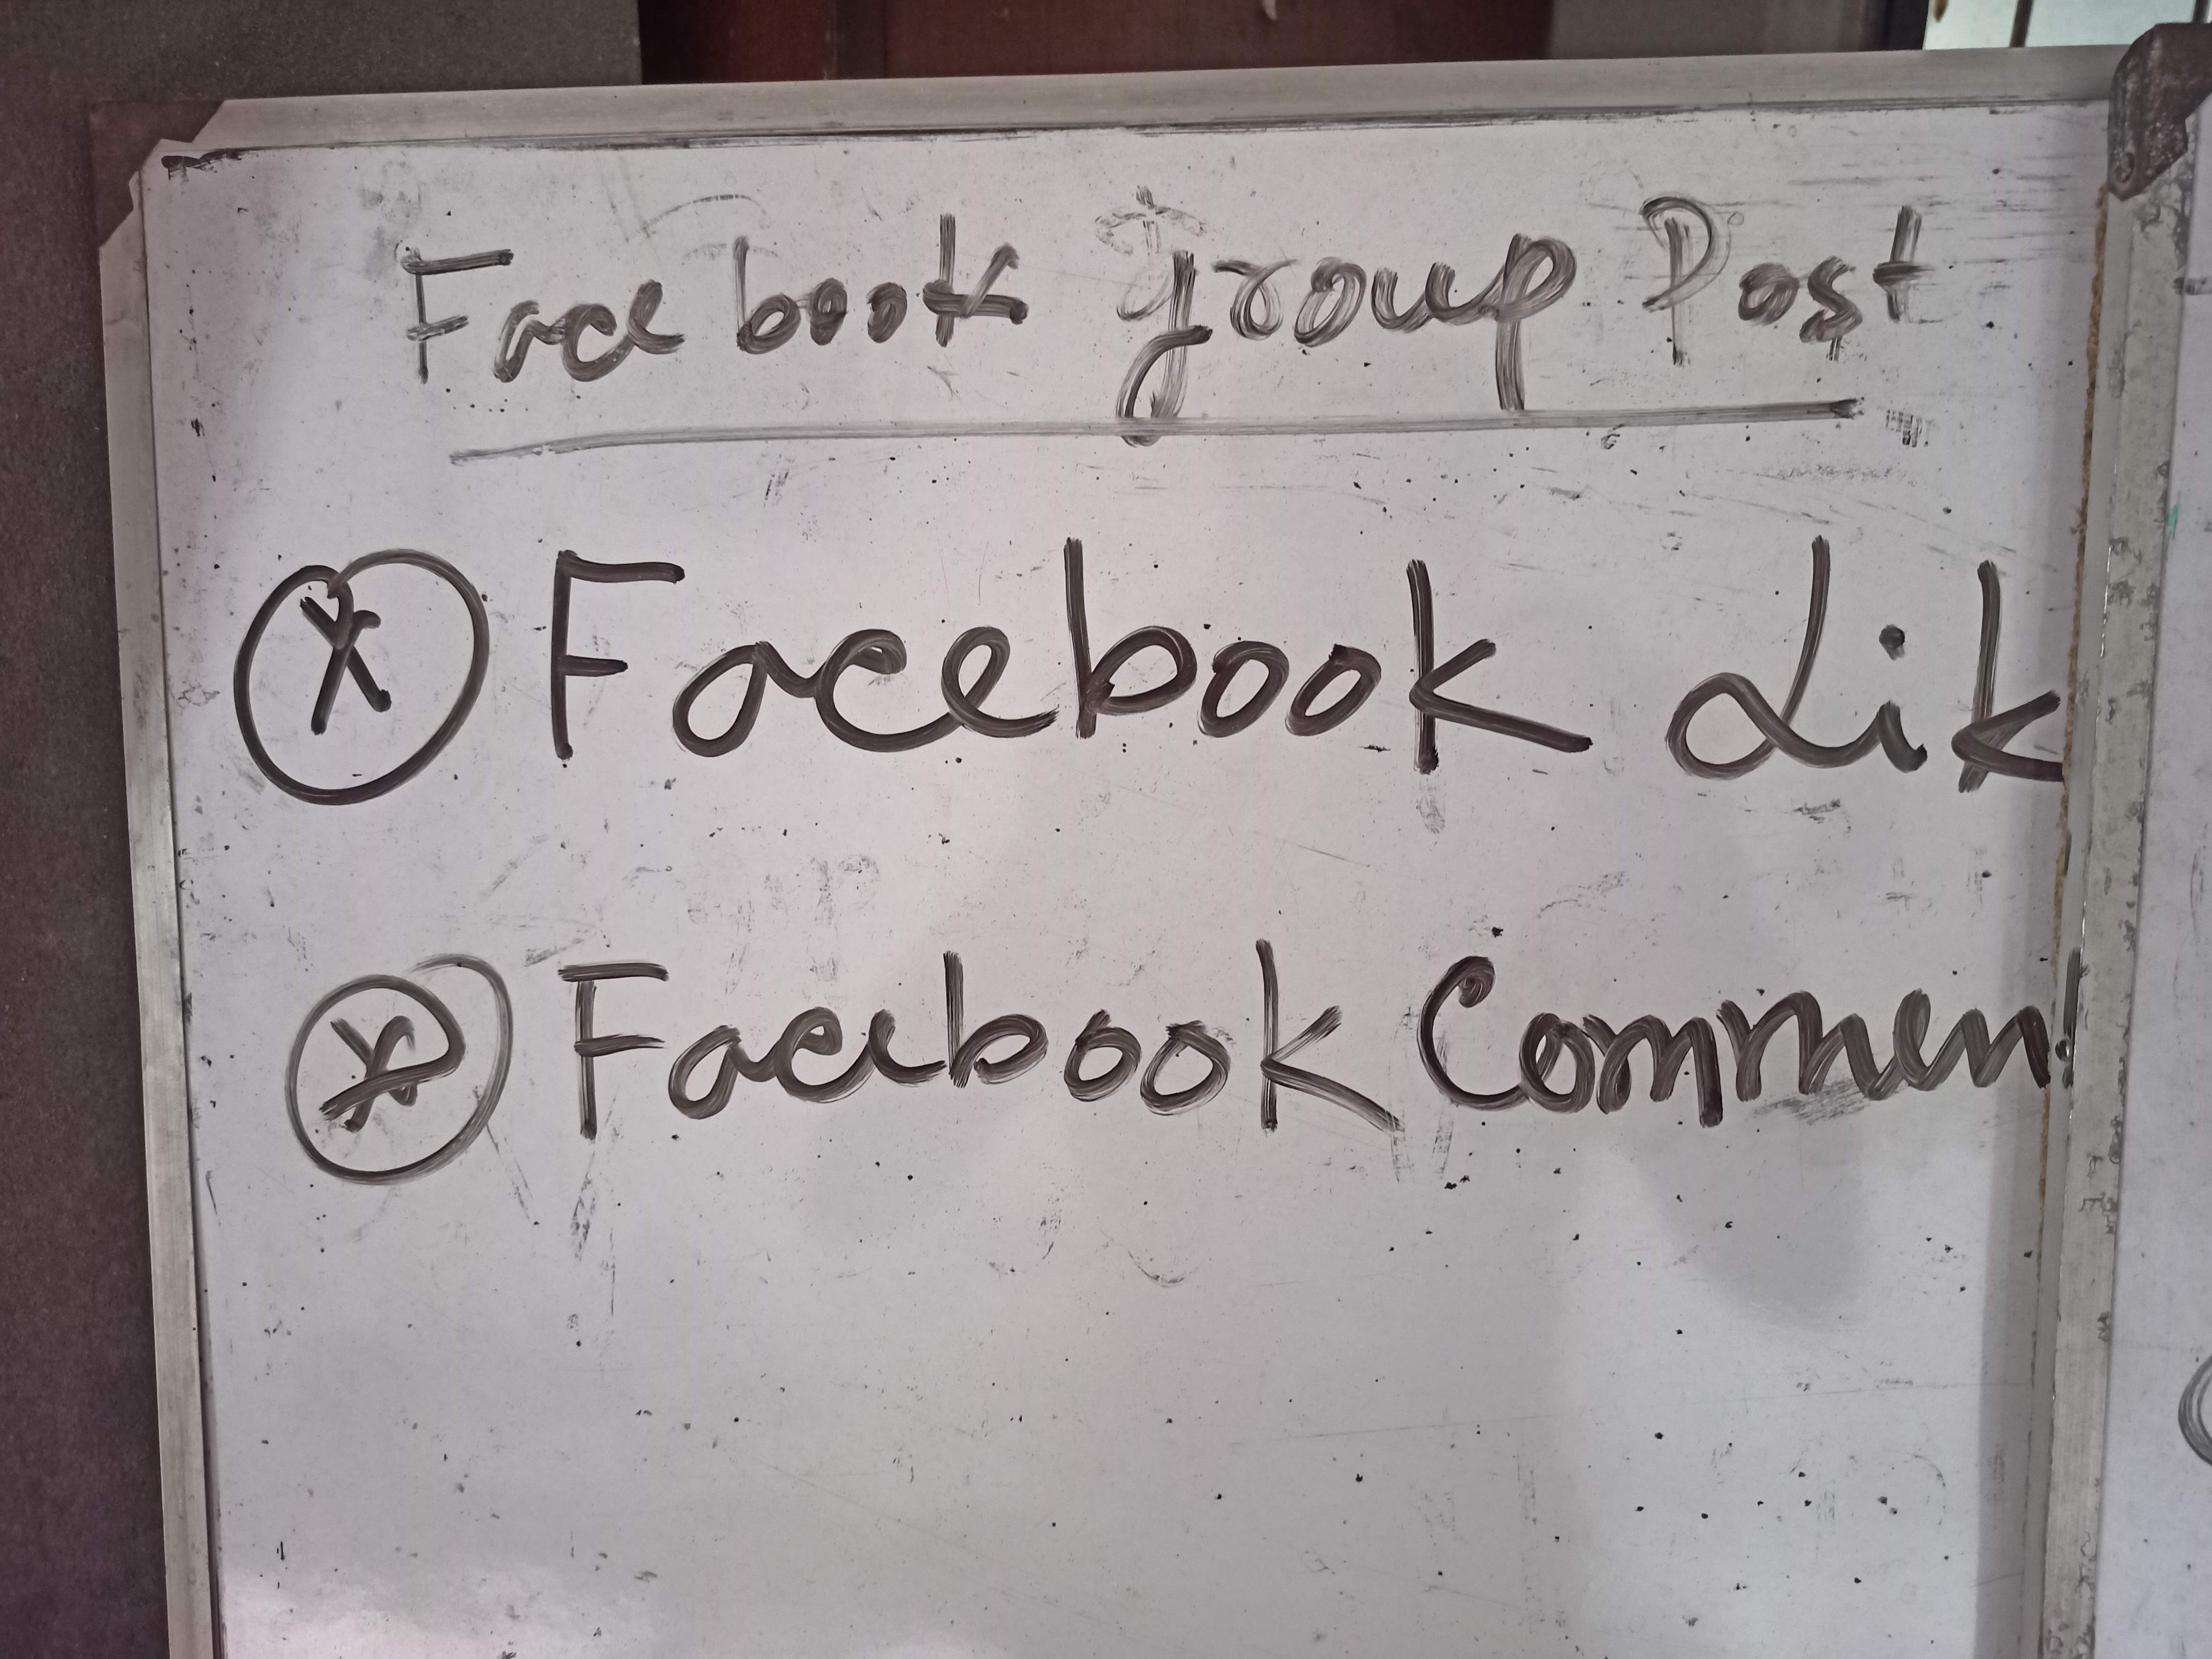 Facebook group Post
Facebook Lik
Facebook Commen